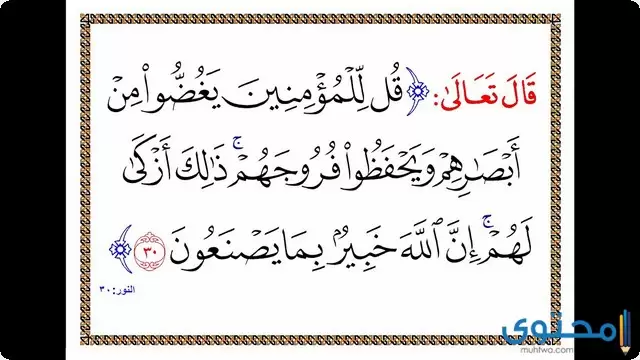 قَالَ تَعَالَىٰ: ﴿قُل لِّلْمُؤْمِنِينَ يَغُضُّوا۟ مِنْ
أَبْصَٰرِهِمْ وَيَحْفَظُوا۟ فُرُوجَهُمْ ۚ ذَٰلِكَ أَزْكَىٰ
لَهُمْ ۚ إِنَّ ٱللَّهَ خَبِيرٌۢ بِمَا يَصْنَعُونَ ٣٠﴾
النور: ٣٠
محتوى
muhtwa.com